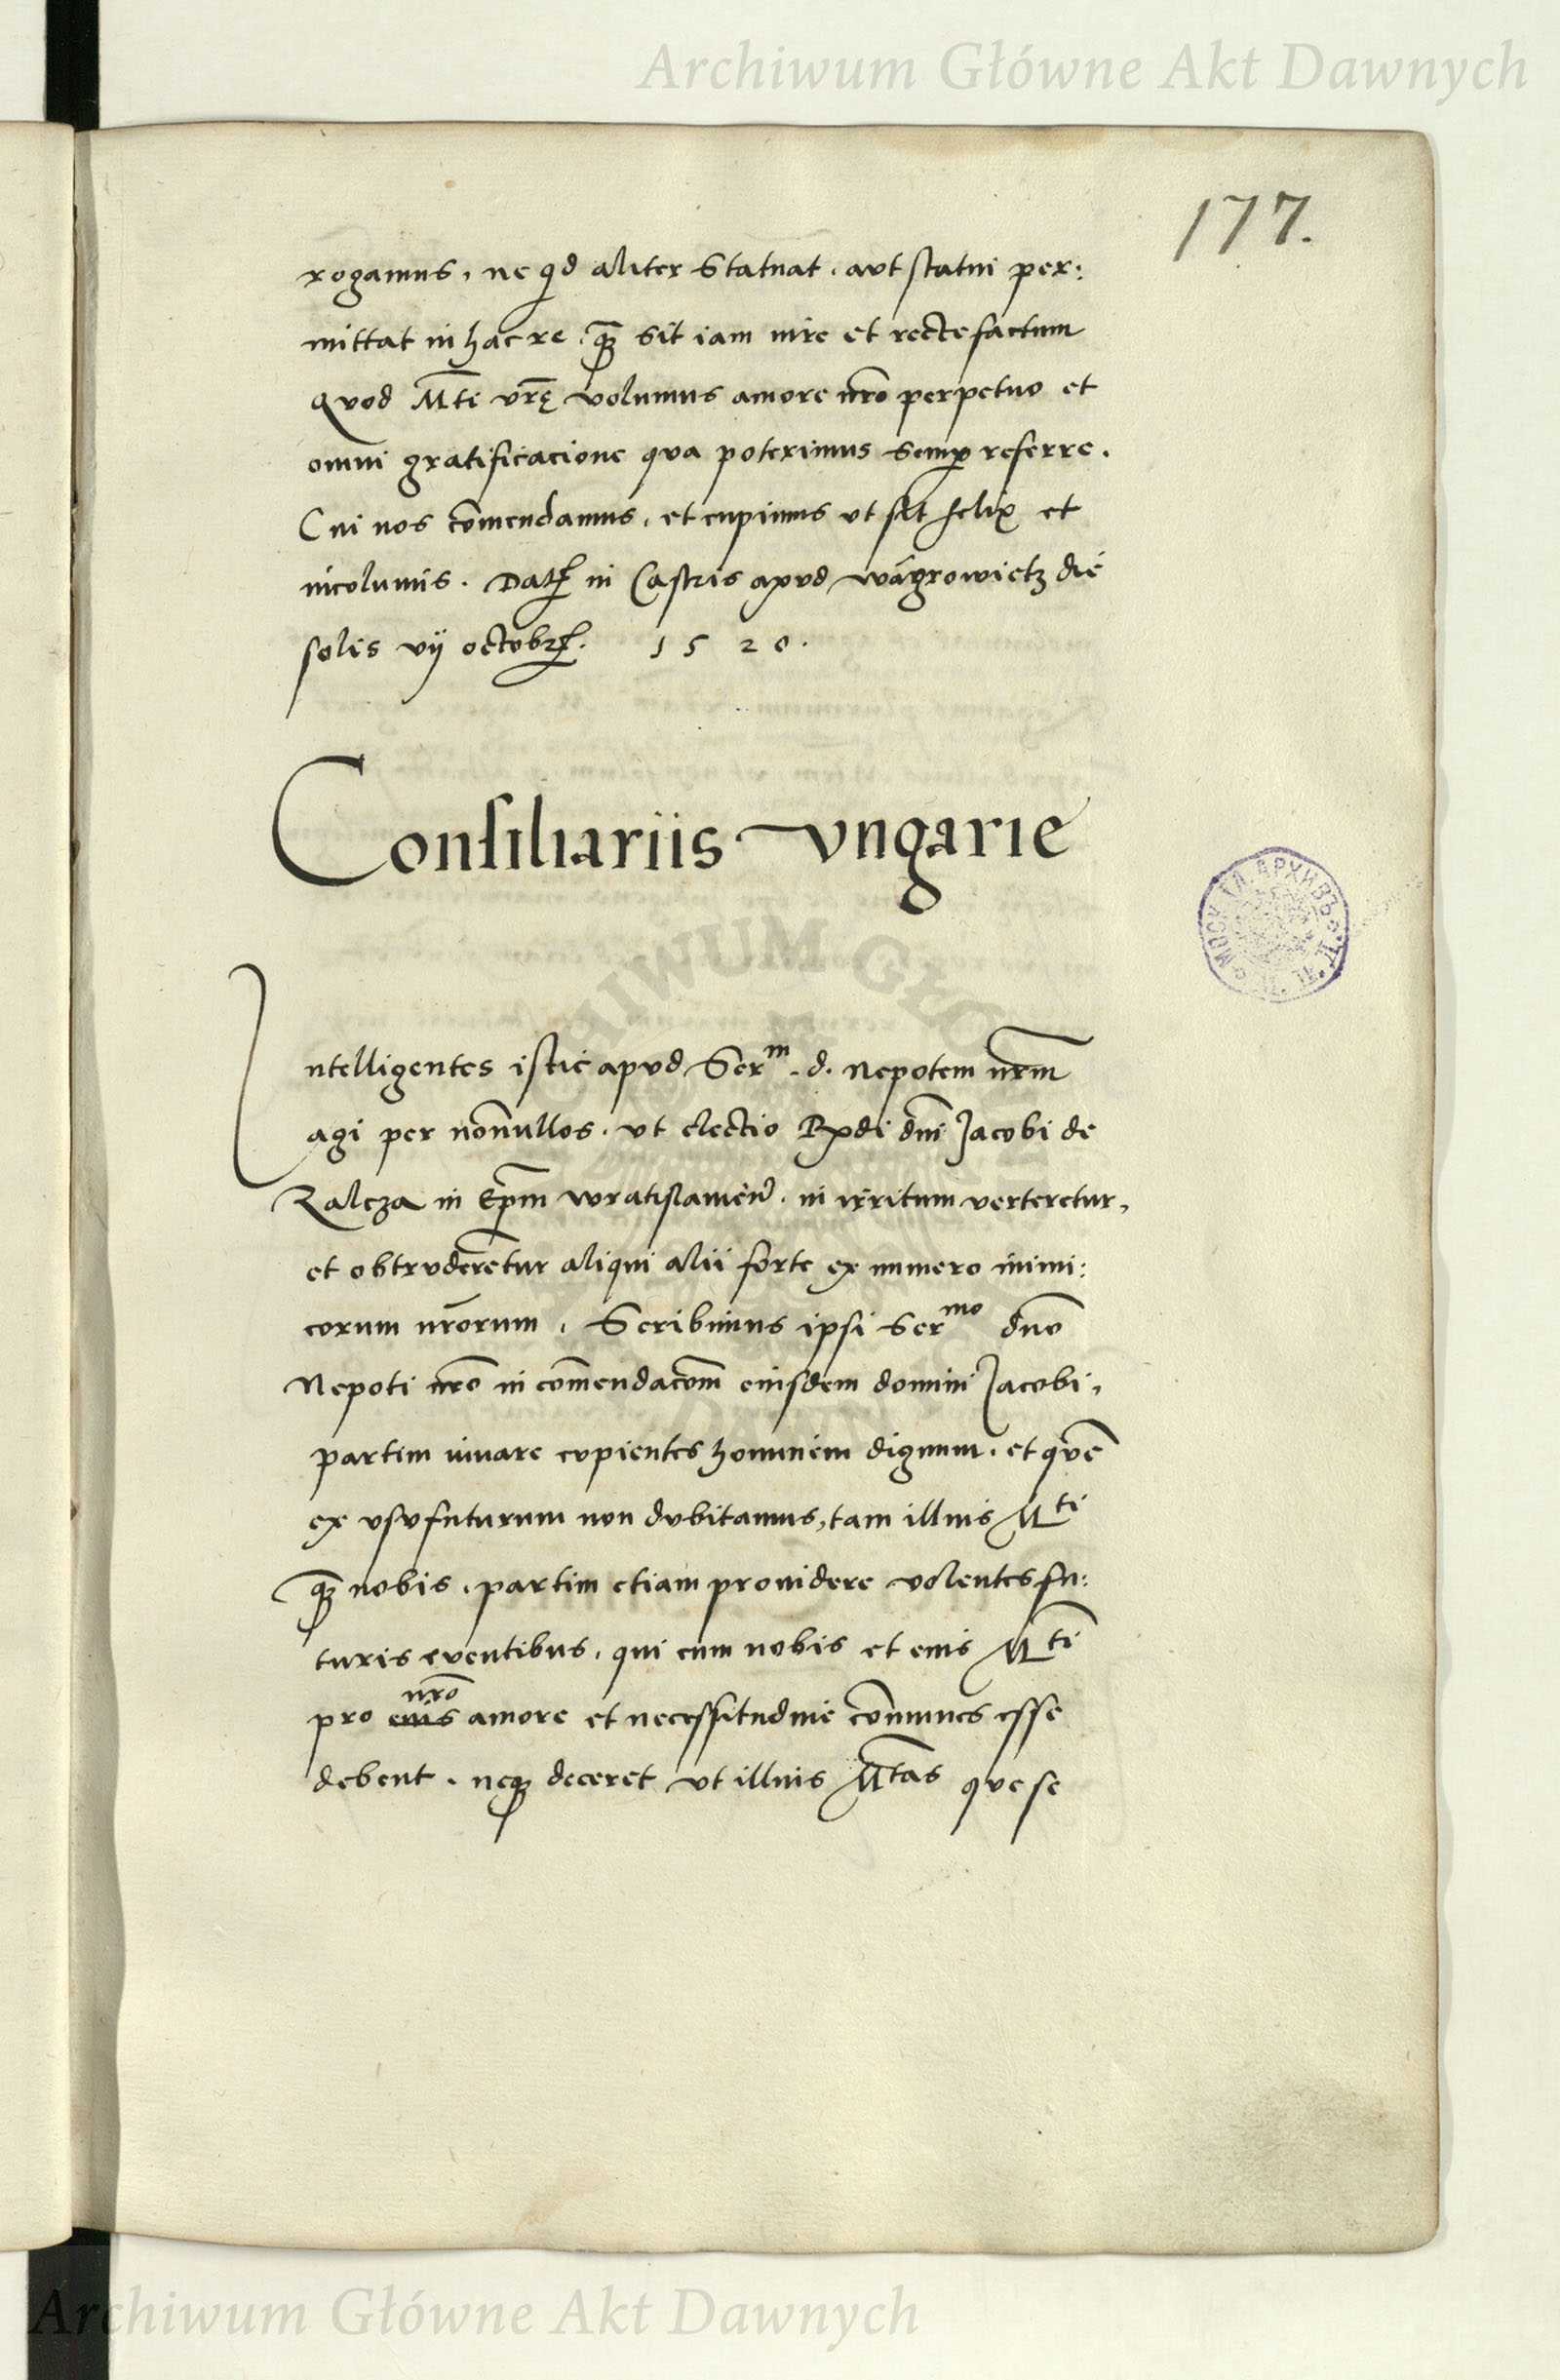 Archiwum Główne Akt Dawnych
177.
rogamus, ne qd aliter Statuat. aut statui per:
mittat in hac re. qȝ̄ sit iam iure et recte factum
Quod M̄ti vr̄ę volumus amore nr̄o perpetuo et
omni gratificacione qua poterimus semꝑ referre.
Cui nos com̄endamus, et cupimus ut sit felix et
incolumis. Datꝝ in Castris apud wągrowietz die
solis vij octobꝝ. 1520.
Consiliariis vngarie
Intelligentes istic apud Ser^m. d. Nepotem nr̄m
agi per nonnullos. ut electio Rx̄di dn̄i Jacobi de
Zalcza in Ep̄m wratislamien̄. in irritum verteretur,
et obtruderentur aliqui alii forte ex numero inimi:
corum nr̄orum. Scribimus ipsi Ser^mo dn̄o
Nepoti nr̄o in com̄endacōm eiusdem domini Jacobi,
partim iuvare cupientes hominem dignum. et quē
ex usu futurum non dubitamus, tam illius M^ti
qȝ̄ nobis. partim etiam providere volentes fu:
turis eventibus, qui cum nobis et eius M^ti
nr̄o
pro eius amore et necessitudine com̄unes esse
debent. neqȝ deceret ut illius M̄tas que se
МОСК. ГЛ. АРХИВЪ
Archiwum Główne Akt Dawnych